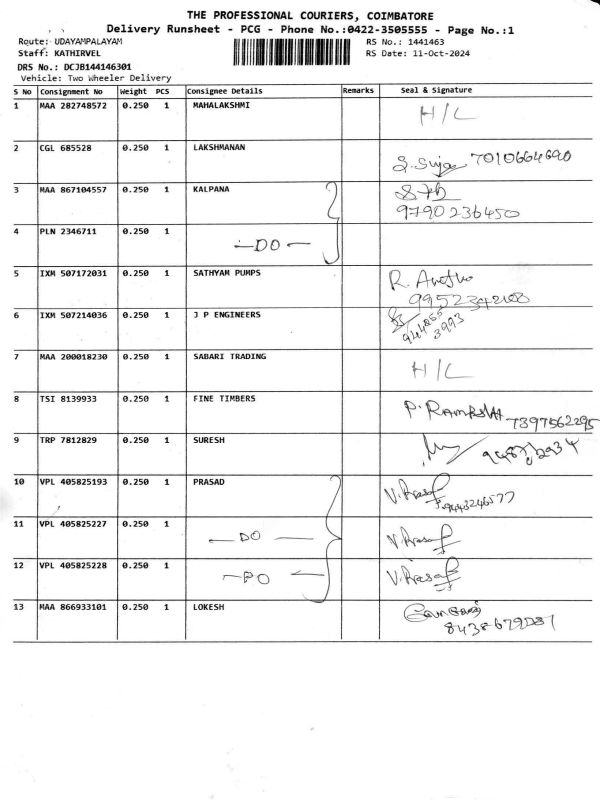 THE PROFESSIONAL COURIERS, COIMBATORE
Delivery Runsheet - PCG - Phone No.:0422-3505555 - Page No.:1
Route: UDAYAMPALAYAM RS No.: 1441463
Staff: KATHIRVEL RS Date: 11-Oct-2024
DRS No.: DCJB144146301
Vehicle: Two Wheeler Delivery
S No Consignment No Weight PCS Consignee Details Remarks Seal & Signature
1 MAA 282748572 0.250 1 MAHALAKSHMI H/L
2 CGL 685528 0.250 1 LAKSHMANAN 7010664690
3 MAA 867104557 0.250 1 KALPANA
9790236450
4 PLN 2346711 0.250 1
—DO—
5 IXM 507172031 0.250 1 SATHYAM PUMPS
6 IXM 507214036 0.250 1 J P ENGINEERS
7 MAA 200018230 0.250 1 SABARI TRADING H/L
8 TSI 8139933 0.250 1 FINE TIMBERS 7397562295
9 TRP 7812829 0.250 1 SURESH
10 VPL 405825193 0.250 1 PRASAD V. Prasad
9443246577
11 VPL 405825227 0.250 1 —DO— V. Prasad
12 VPL 405825228 0.250 1 —DO— V. Prasad
13 MAA 866933101 0.250 1 LOKESH
8438679087